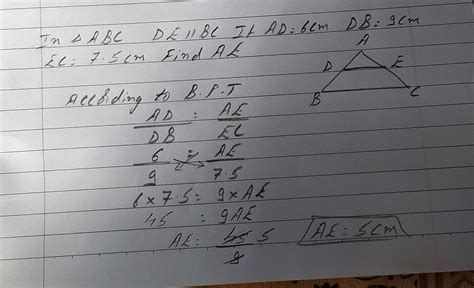 In △ABC DE∥BC If AD=6cm DB=9cm
EC=7.5cm Find AE
A
D E
B C
According to B.P.T
AD = AE
DB EC
6 = AE
9 7.5
6×7.5=9×AE
45 = 9AE
AE= 45 5
9
AE=5cm